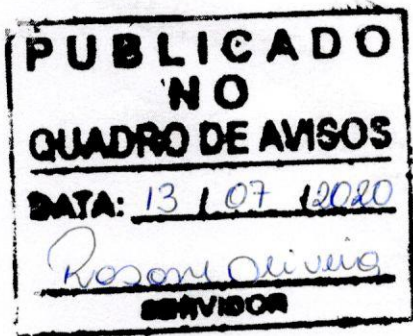 PUBLICADO
NO
QUADRO DE AVISOS
DATA: 13 / 07 / 2020
Rosane Oliveira
SERVIDOR